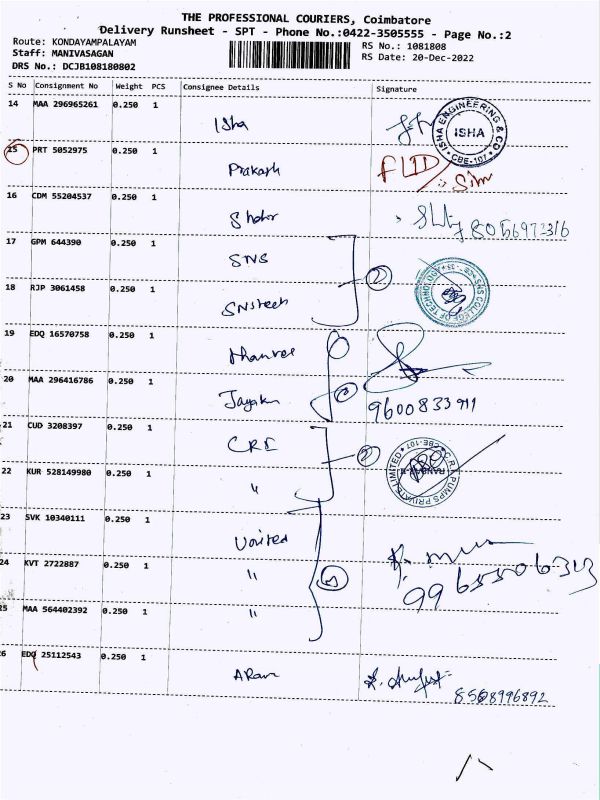 THE PROFESSIONAL COURIERS, Coimbatore
Delivery Runsheet - SPT - Phone No.:0422-3505555 - Page No.:2
Route: KONDAYAMPALAYAM
RS No.: 1081808
Staff: MANIVASAGAN
RS Date: 20-Dec-2022
DRS No.: DCJB108180802
S No Consignment No Weight PCS Consignee Details Signature
14 MAA 296965261 0.250 1 Isha
ISHA ENGINEERING & CO
ISHA
CBE-107
15 PRT 5052975 0.250 1 Prakash
16 CDM 55204537 0.250 1 8056972316
17 GPM 644390 0.250 1 SNS
SNS COLLEGE OF TECHNOLOGY
18 RJP 3061458 0.250 1 SNStech
2
19 EDQ 16570758 0.250 1
20 MAA 296416786 0.250 1
21 CUD 3208397 0.250 1 CRI
C.R.I. PUMPS PRIVATE LIMITED
CBE-107
22 KUR 528149980 0.250 1 "
23 SVK 10340111 0.250 1 United
24 KVT 2722887 0.250 1 "
25 MAA 564402392 0.250 1 "
26 EDQ 25112543 0.250 1
8508996892